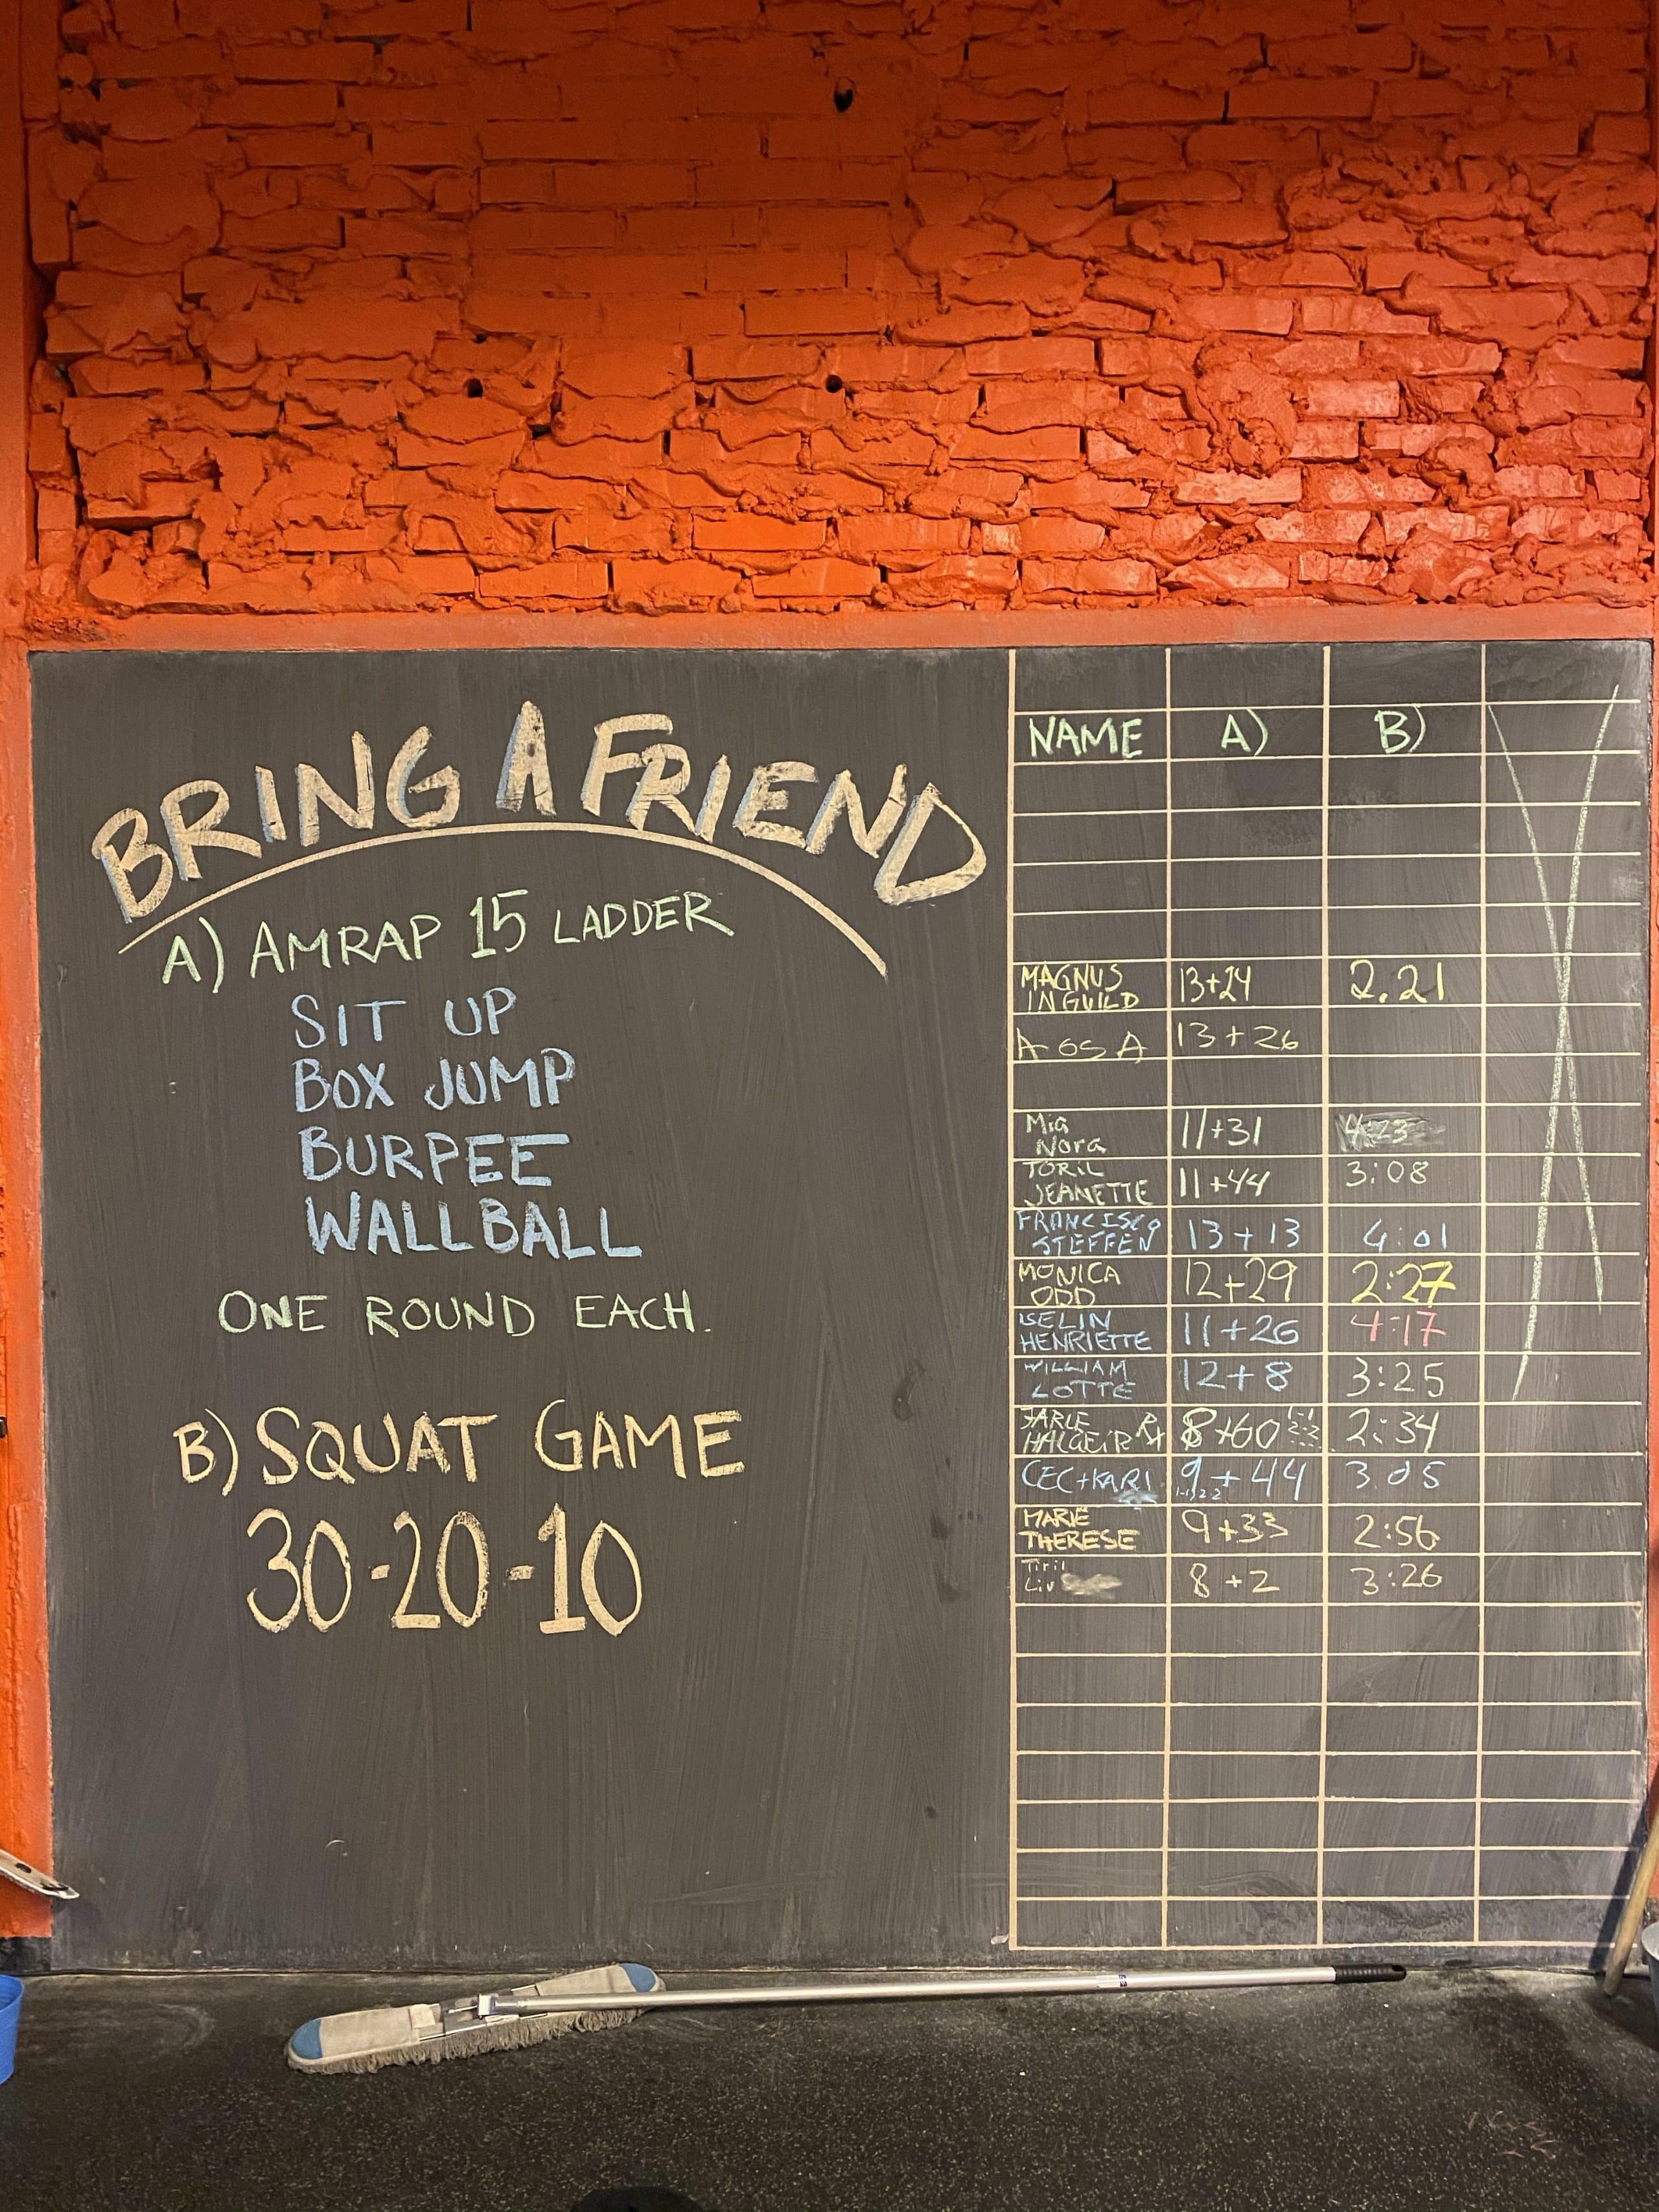 BRING A FRIEND
A) AMRAP 15 LADDER
SIT UP
BOX JUMP
BURPEE
WALLBALL
ONE ROUND EACH.
B) SQUAT GAME
30-20-10
NAME A) B)
MAGNUS
INGUILD 13+24 2.21
13+26
Mia
Nora 11+31 4:23
TORIL
JEANETTE 11+44 3:08
FRANCISCO
STEFFEN 13+13 4:01
MONICA
ODD 12+29 2:27
HENRIETTE 11+26 4:17
WILLIAM
LOTTE 12+8 3:25
JARLE
HALGEIR RX 8+60 2:34
CEC+KARI 9+44 3.05
MARIE
THERESE 9+33 2:56
Tiril
Liv 8+2 3:26